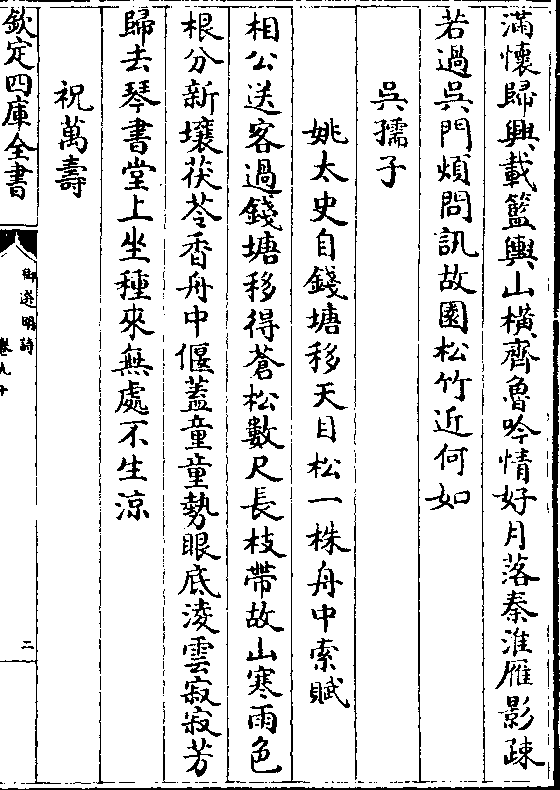 滿懷歸興載籃輿山橫齊魯吟情好月落秦淮雁影疎
若過吳門煩問訊故園松竹近何如
吳孺子
姚太史自錢塘移天目松一株舟中索賦
相公送客過錢塘移得蒼松數尺長枝帶故山寒雨色
根分新壤茯苓香舟中偃蓋童童勢眼底淩雲寂寂芳
歸去琴書堂上坐種來無處不生涼
祝萬壽
欽定四庫全書
御選明詩
卷九十
二